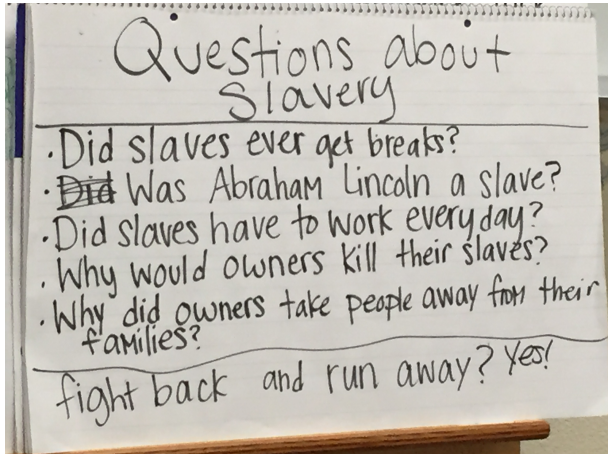 Questions about
Slavery
· Did slaves ever get breaks?
· Did Was Abraham Lincoln a slave?
· Did slaves have to work everyday?
· Why would owners kill their slaves?
· Why did owners take people away from their
families?
fight back and run away? Yes!